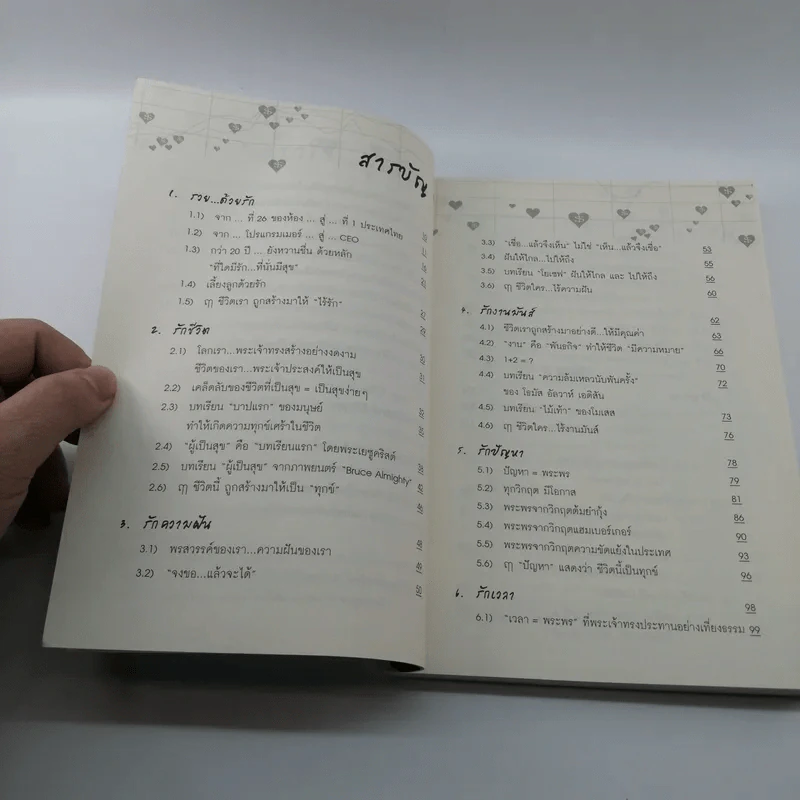 สารบัญ
1. รวย...ด้วยรัก
1.1) จาก ... ที่ 26 ของห้อง ... สู่ ... ที่ 1 ประเทศไทย
1.2) จาก ... โปรแกรมเมอร์ ... สู่ ... CEO
1.3) กว่า 20 ปี ... ยังหวานชื่น ด้วยหลัก
"ที่ใดมีรัก...ที่นั่นมีสุข"
1.4) เลี้ยงลูกด้วยรัก
1.5) ฤๅ ชีวิตเรา ถูกสร้างมาให้ "ไร้รัก"
2. รักชีวิต
2.1) โลกเรา...พระเจ้าทรงสร้างอย่างงดงาม
ชีวิตของเรา...พระเจ้าประสงค์ให้เป็นสุข
2.2) เคล็ดลับของชีวิตที่เป็นสุข = เป็นสุขง่ายๆ
2.3) บทเรียน "บาปแรก" ของมนุษย์
ทำให้เกิดความทุกข์เศร้าในชีวิต
2.4) "ผู้เป็นสุข" คือ "บทเรียนแรก" โดยพระเยซูคริสต์
2.5) บทเรียน "ผู้เป็นสุข" จากภาพยนตร์ "Bruce Almighty"
2.6) ฤๅ ชีวิตนี้ ถูกสร้างมาให้เป็น "ทุกข์"
3. รักความฝัน
3.1) พรสวรรค์ของเรา...ความฝันของเรา
3.2) "จงขอ...แล้วจะได้"
3.3) "เชื่อ...แล้วจึงเห็น" ไม่ใช่ "เห็น...แล้วจึงเชื่อ" 53
3.4) ฝันให้ไกล...ไปให้ถึง 55
3.5) บทเรียน "โยเซฟ" ฝันให้ไกล และ ไปให้ถึง 56
3.6) ฤๅ ชีวิตใคร...ไร้ความฝัน 60
4. รักงานมันส์ 62
4.1) ชีวิตเราถูกสร้างมาอย่างดี...ให้มีคุณค่า 63
4.2) "งาน" คือ "พันธกิจ" ทำให้ชีวิต "มีความหมาย" 66
4.3) 1+2 = ? 70
4.4) บทเรียน "ความล้มเหลวนับพันครั้ง" 72
ของ โธมัส อัลวาห์ เอดิสัน
4.5) บทเรียน "ไม้เท้า" ของโมเสส 73
4.6) ฤๅ ชีวิตใคร...ไร้งานมันส์ 76
5. รักปัญหา 78
5.1) ปัญหา = พระพร 79
5.2) ทุกวิกฤต มีโอกาส 81
5.3) พระพรจากวิกฤตต้มยำกุ้ง 86
5.4) พระพรจากวิกฤตแฮมเบอร์เกอร์ 90
5.5) พระพรจากวิกฤตความขัดแย้งในประเทศ 93
5.6) ฤๅ "ปัญหา" แสดงว่า ชีวิตนี้เป็นทุกข์ 96
6. รักเวลา 98
6.1) "เวลา = พระพร" ที่พระเจ้าทรงประทานอย่างเที่ยงธรรม 99